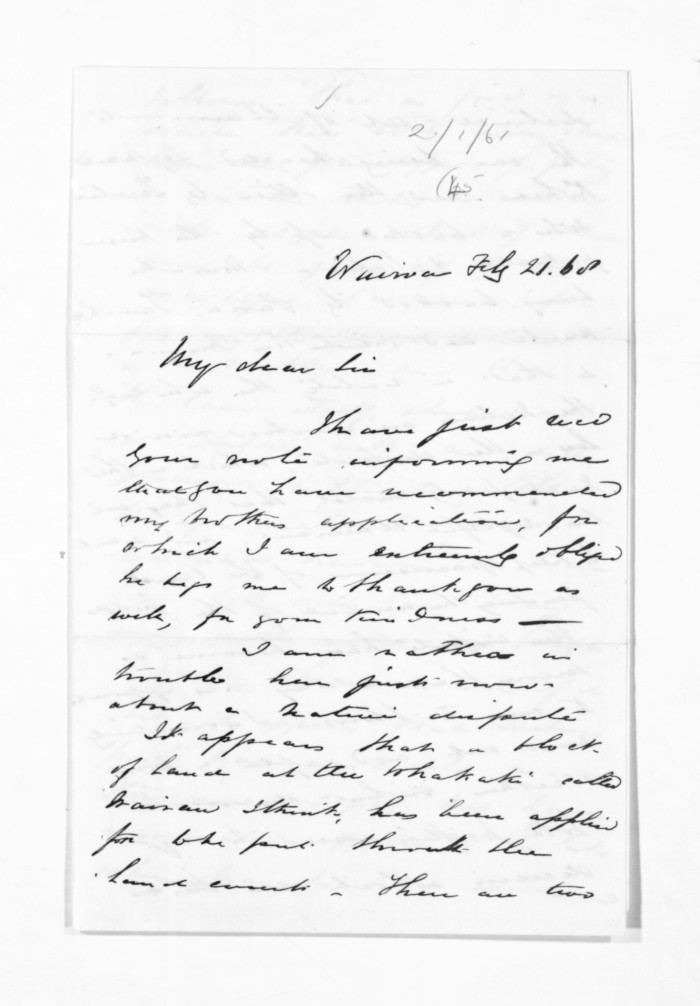 2/1/61
(45
Wairoa Feby 21. 68
My dear Sir
I have just recd
your note informing me
that you have recommended
my brothers application, for
which I am extremely obliged
he begs me to thank you as
well, for your kindness —
I am rather in
trouble here just now
about a native dispute
It appears that a block
of land at the Whakaki called
I think, has been applied
for to be put through the
Land courts - There are two